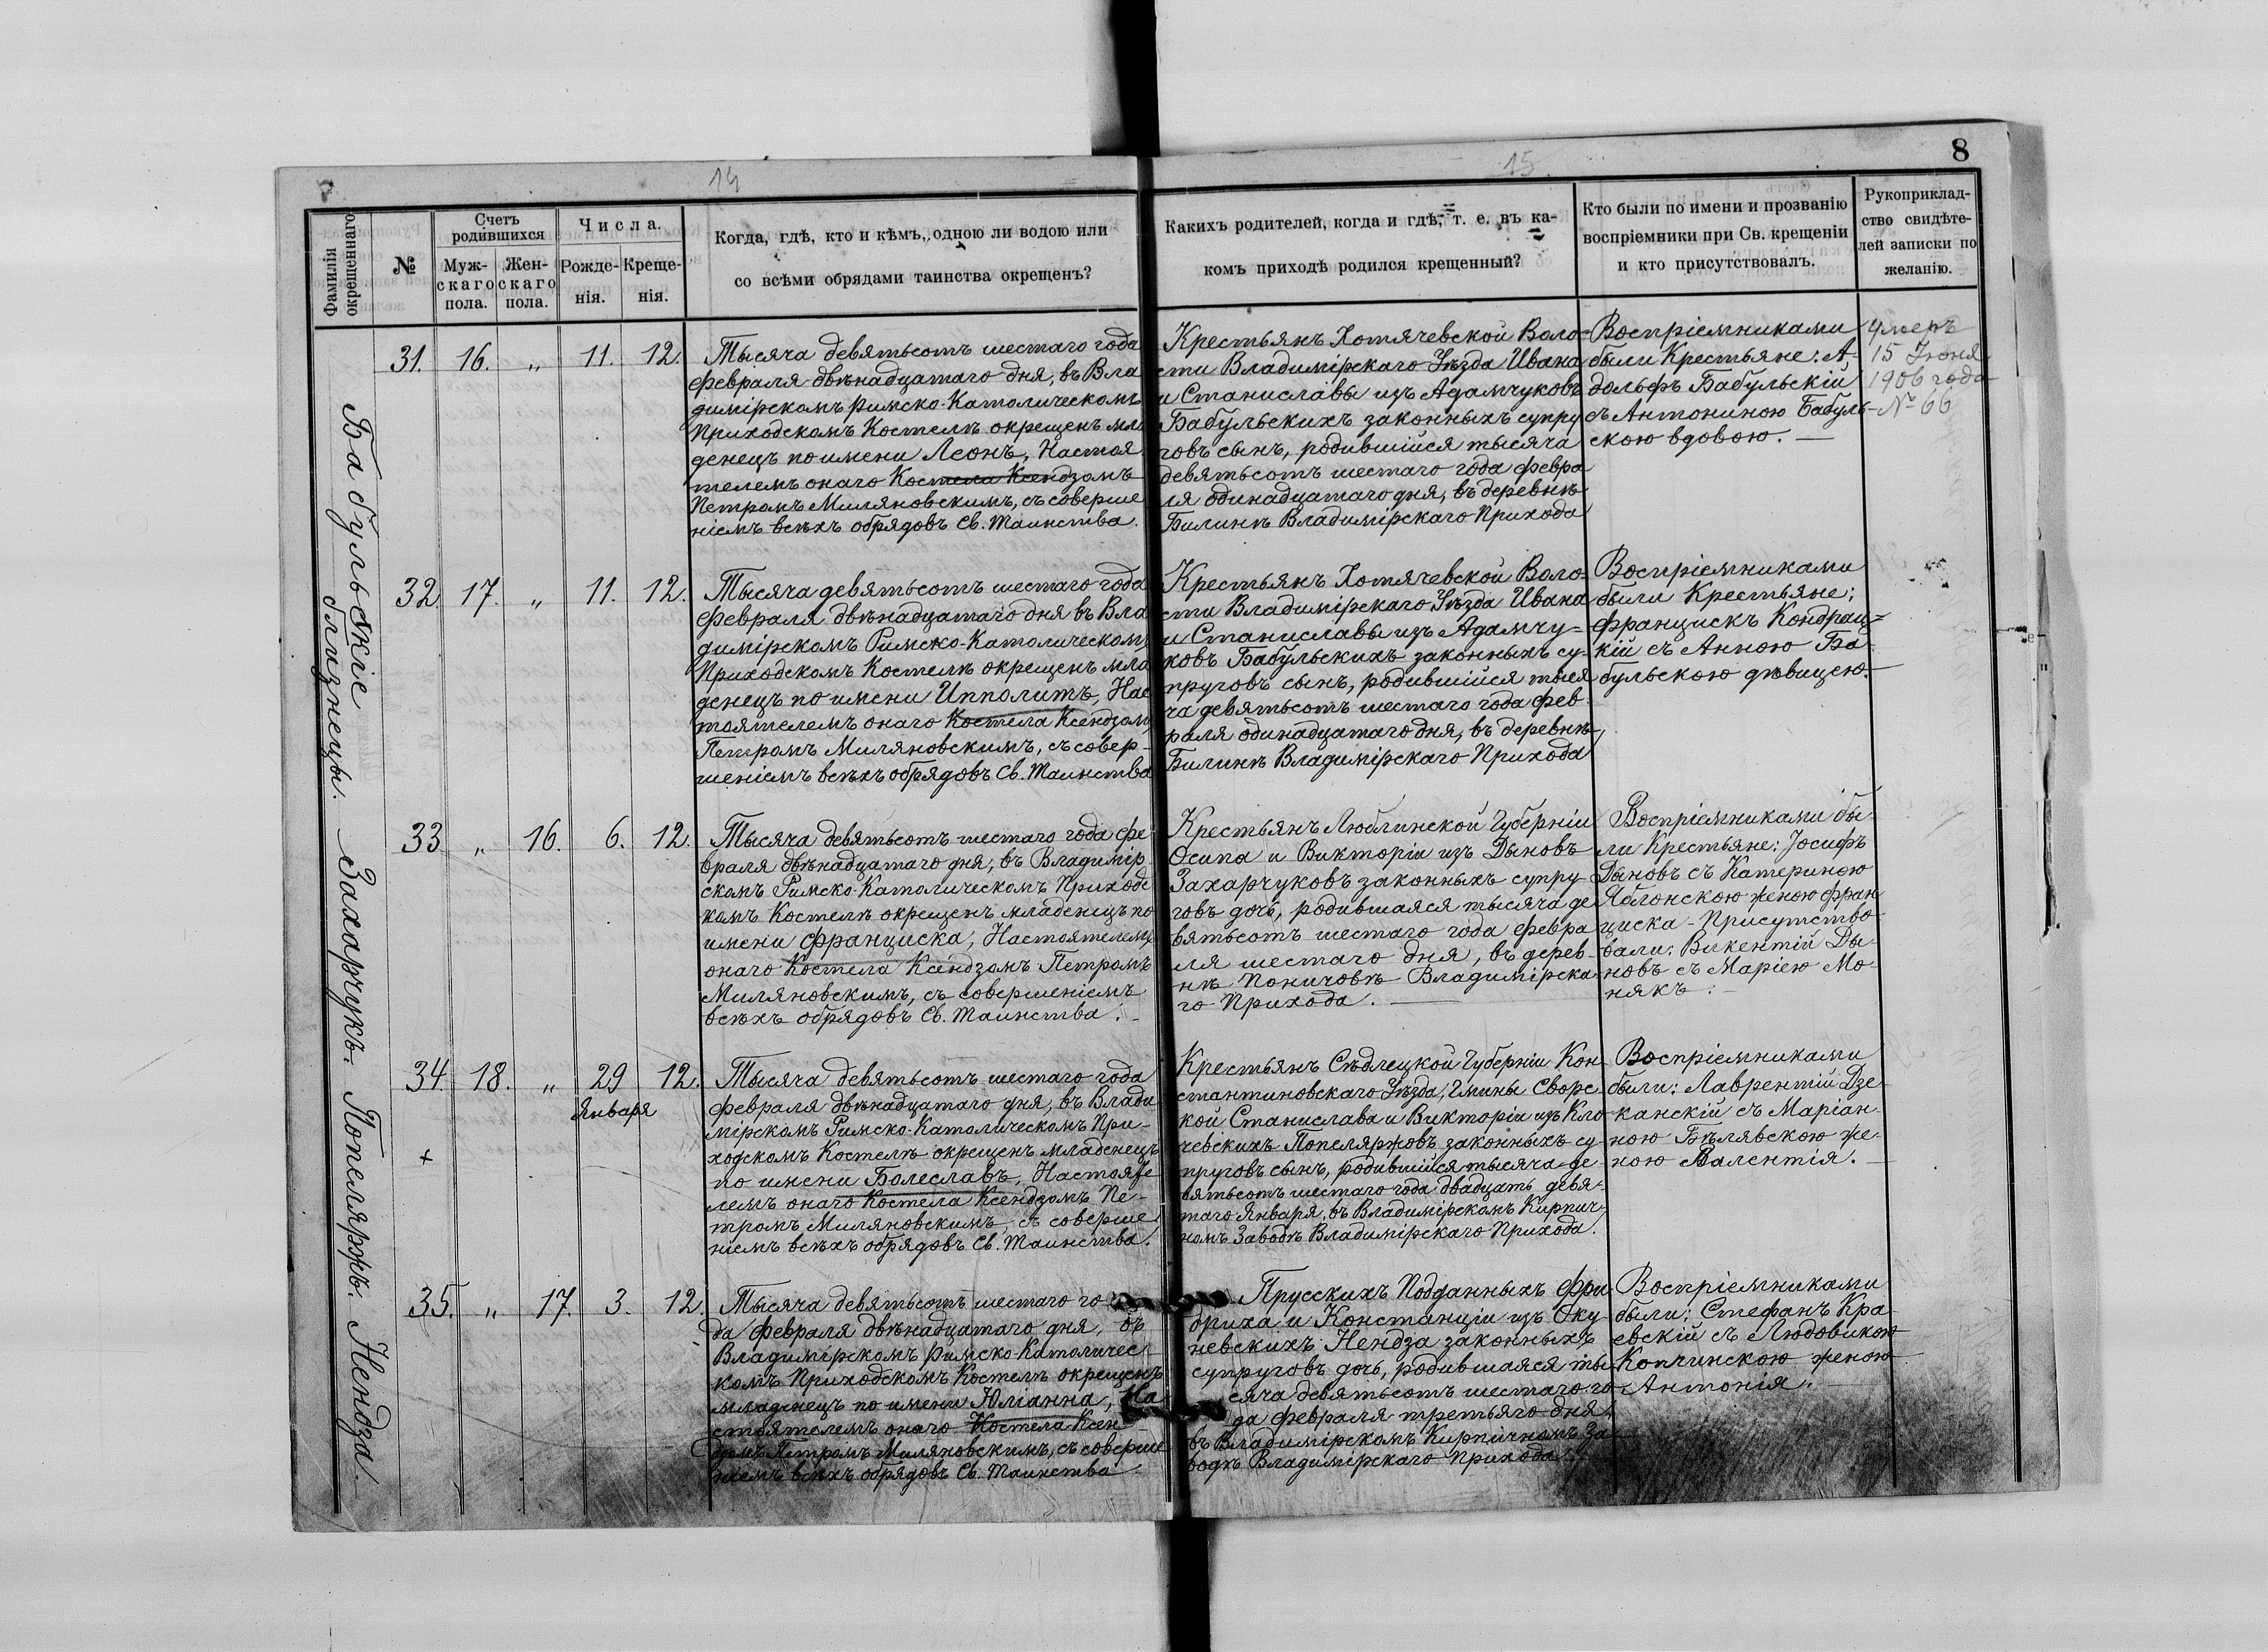 14
15.
8
Фамиліи
окрещеннаго
№
Счетъ
родившихся
Муж-
скаго
пола.
Жен-
скаго
пола.
Числа.
Рожде-
нія.
Креще-
нія.
Когда, гдѣ, кто и кѣмъ, одною ли водою или
со всѣми обрядами таинства окрещенъ?
Какихъ родителей, когда и гдѣ, т. е. въ ка-
комъ приходѣ родился крещенный?
Кто были по имени и прозванію
воспріемники при Св. крещеніи
и кто присутствовалъ.
Рукоприклад-
ство свидѣте-
лей записки по
желанію.
Бабульскіе
близнецы.
31. 16. „ 11. 12.
Тысяча девятьсотъ шестаго года
февраля двѣнадцатаго дня, въ Вла
димірскомъ Римско-Католическомъ
Приходскомъ Костелѣ окрещенъ мла
денецъ по имени Леонъ, Настоя
телемъ онаго Костела Ксендзомъ
Петромъ Миляновскимъ, съ соверше
ніемъ всѣхъ обрядовъ Св. Таинства.
Крестьянъ Хотячевской Воло-
сти Владимірскаго Уѣзда Ивана
и Станиславы изъ Адамчуковъ
Бабульскихъ законныхъ супру
говъ сынъ, родившійся тысяча
девятьсотъ шестаго года февра
ля одинадцатаго дня, въ деревнѣ
Билинѣ Владимірскаго Прихода
Воспріемниками
были Крестьяне: А-
дольфъ Бабульскій
съ Антониною Бабуль-
скою вдовою. —
Умеръ
15 Іюня
1906 года
№ 66
32. 17. „ 11. 12.
Тысяча девятьсотъ шестаго года
февраля двѣнадцатаго дня въ Вла
димірскомъ Римско-Католическомъ
Приходскомъ Костелѣ окрещенъ мла
денецъ по имени Ипполитъ, Нас
тоятелемъ онаго Костела Ксендзомъ
Петромъ Миляновскимъ, съ совер-
шеніемъ всѣхъ обрядовъ Св. Таинства
Крестьянъ Хотячевской Воло-
сти Владимірскаго Уѣзда Ивана
и Станиславы изъ Адамчу-
ковъ Бабульскихъ законныхъ су-
пруговъ сынъ, родившійся тыся
ча девятьсотъ шестаго года фев
раля одинадцатаго дня, въ деревнѣ
Билинѣ Владимірскаго Прихода
Воспріемниками
были Крестьяне:
Францискъ Кондрац-
кій съ Анною Ба-
бульскою дѣвицею.
Захарчукъ.
33 „ 16. 6. 12.
Тысяча девятьсотъ шестаго года фе-
враля двѣнадцатаго дня, въ Владимір
скомъ Римско-Католическомъ Приходс
комъ Костелѣ окрещенъ младенецъ по
имени Франциска, Настоятелемъ
онаго Костела Ксендзомъ Петромъ
Миляновскимъ, съ совершеніемъ
всѣхъ обрядовъ Св. Таинства. —
Крестьянъ Люблинской Губерніи
Осипа и Викторіи изъ Дыновъ
Захарчуковъ законныхъ супру-
говъ дочь, родившаяся тысяча де
вятьсотъ шестаго года февра
ля шестаго дня, въ дерев-
нѣ Поничовѣ Владимірска-
го Прихода. —
Воспріемниками бы-
ли Крестьяне: Іосифъ
Дыновъ съ Катериною
Яблонскою женою Фран
циска - Присутство-
вали: Викентій Ды-
новъ съ Маріею Мо-
някъ. —
Попеляржъ.
34. 18. „ 29 12.
Января
+
Тысяча девятьсотъ шестаго года
февраля двѣнадцатаго дня, въ Влади
мірскомъ Римско-Католическомъ При-
ходскомъ Костелѣ окрещенъ младенецъ
по имени Болеславъ, Настояте
лемъ онаго Костела Ксендзомъ Пе-
тромъ Миляновскимъ, съ соверше
ніемъ всѣхъ обрядовъ Св. Таинства.
Крестьянъ Сѣдлецкой Губерніи Кон-
стантиновскаго Уѣзда, Гмины Сворс-
кой Станислава и Викторіи изъ Кло-
чевскихъ Попеляржовъ законныхъ су-
пруговъ сынъ, родившійся тысяча де-
вятьсотъ шестаго года двадцать девя-
таго Января, въ Владимірскомъ Кирпич-
номъ Заводѣ Владимірскаго Прихода.
Воспріемниками
были: Лаврентій Дзе-
канскій съ Маріан-
ною Бѣлявскою же-
ною Валентія. —
Нендза.
35. „ 17. 3. 12.
Тысяча девятьсотъ шестаго го-
да февраля двѣнадцатаго дня, въ
Владимірскомъ Римско-Католичес-
комъ Приходскомъ Костелѣ окрещенъ
младенецъ по имени Юліанна, На
стоятелемъ онаго Костела Ксен-
дзомъ Петромъ Миляновскимъ, съ соверше
ніемъ всѣхъ обрядовъ Св. Таинства
Прусскихъ Подданныхъ Фри-
дриха и Констанціи изъ Оку
невскихъ Нендза законныхъ
супруговъ дочь, родившаяся ты
сяча девятьсотъ шестаго го-
да февраля третьяго дня,
въ Владимірскомъ Кирпичномъ За-
водѣ Владимірскаго Прихода.
Воспріемниками
были: Стефанъ Кра-
евскій съ Людовикою
Копчинскою женою
Антонія.